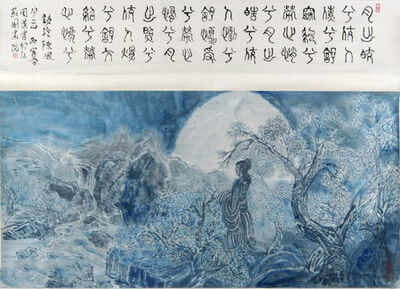 月出皎
兮佼人
僚兮舒
窈糾兮
勞心悄
兮月出
皓兮佼
人懰兮
舒懮受
兮勞心
慅兮月
出照兮
佼人燎
兮舒夭
紹兮勞
心慘兮
詩經陳風